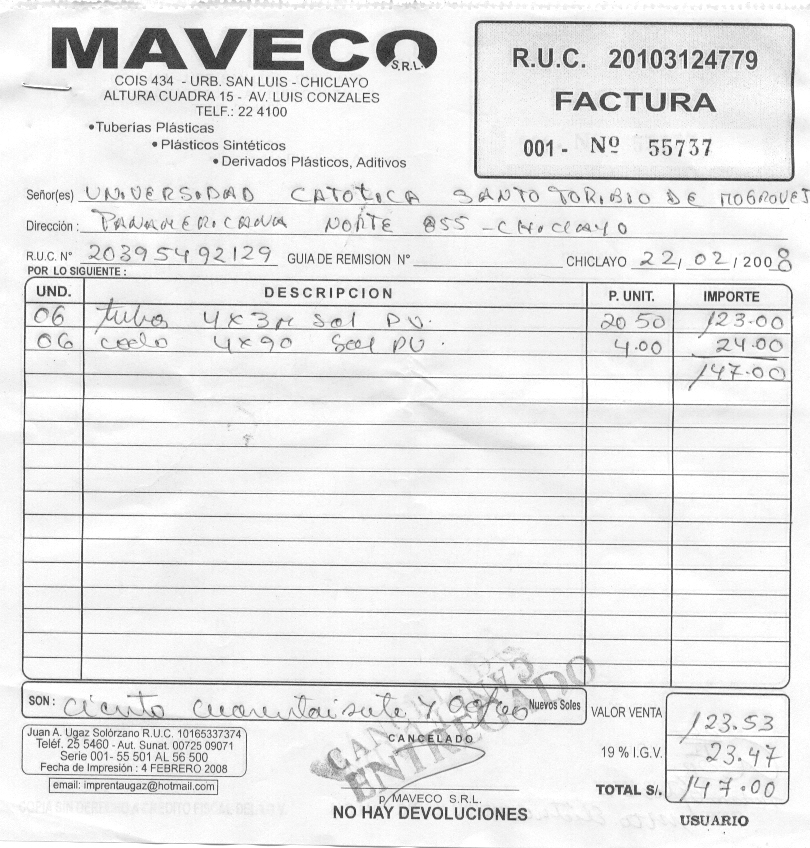 MAVECO S.R.L.
COIS 434 - URB. SAN LUIS - CHICLAYO
ALTURA CUADRA 15 - AV. LUIS CONZALES
TELF.: 22 4100
•Tuberías Plásticas
•Plásticos Sintéticos
•Derivados Plásticos, Aditivos
R.U.C. 20103124779
FACTURA
001- Nº 55737
Señor(es) UNIVERSIDAD CATOLICA SANTO TORIBIO DE MOGROVEJ
Dirección: PANAMERICANA NORTE 855 - CHICLAYO
R.U.C. N° 20395492129 GUIA DE REMISION N° CHICLAYO 22/02/2008
POR LO SIGUIENTE:
UND. DESCRIPCION P. UNIT. IMPORTE
06 tubos 4x3m Sal PV. 20 50 123.00
06 codo 4x90 Sal PV. 4.00 24.00
147.00
SON: Ciento cuarentaisiete y 00/100 Nuevos Soles
VALOR VENTA 123.53
19 % I.G.V. 23.47
TOTAL S/. 147.00
USUARIO
Juan A. Ugaz Solórzano R.U.C. 10165337374
Teléf. 25 5460 - Aut. Sunat. 00725 09071
Serie 001- 55 501 AL 56 500
Fecha de Impresión : 4 FEBRERO 2008
email: imprentaugaz@hotmail.com
CANCELADO
CANCELADO
ENTREGADO
p. MAVECO S.R.L.
NO HAY DEVOLUCIONES